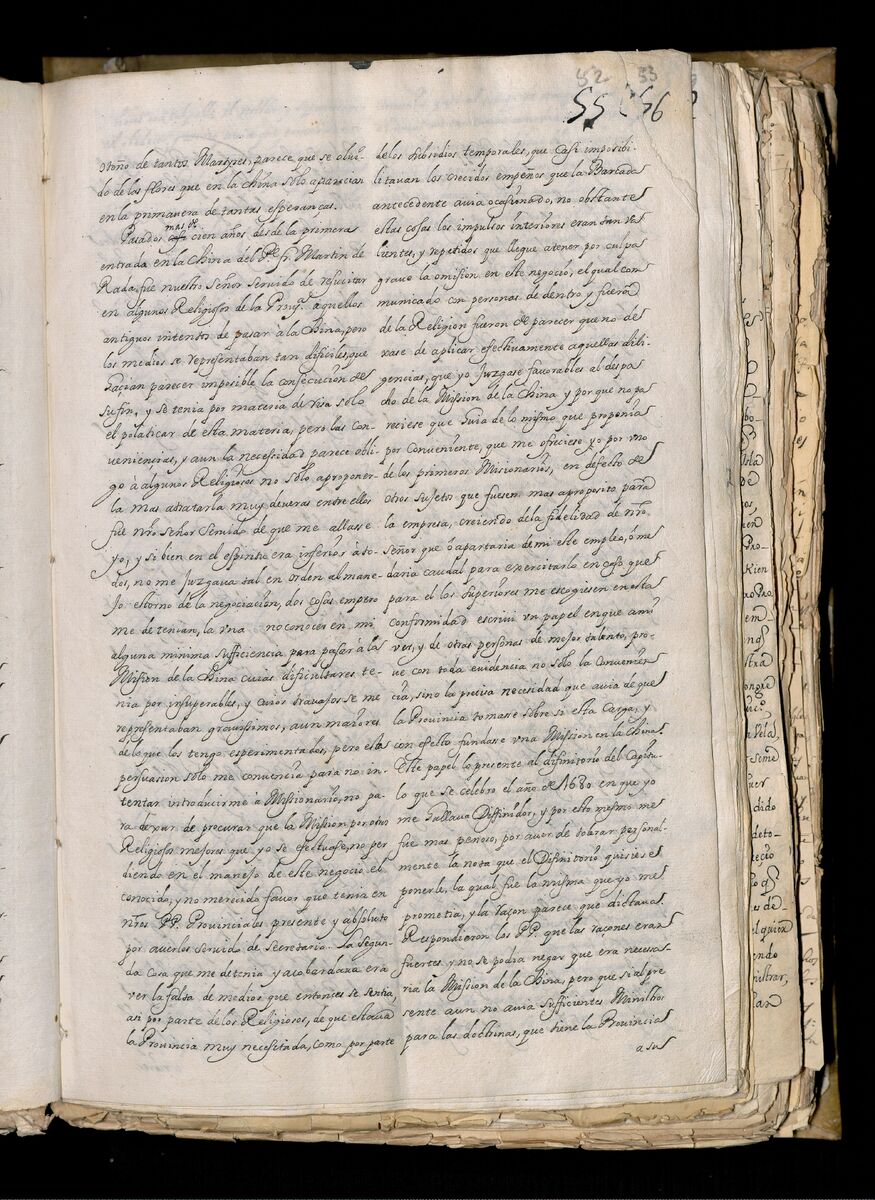 52 53
55 56
otoño de tantos Martyres, parece que se olui-
do de los flores que en la China solo aparecian
en la primauera de tantas esperanças.
mas de
Pasados casi cien años desde la primera
entrada en la China del Pe. fr. Martin de
Rada, fue nuestro Señor seruido de resucitar
en algunos Religiosos de la Prouª. aquellos
antiguos intentos de pasar à la China, pero
los medios se representaban tan dificiles, que
haçian parecer imposible la consecucion del
su fin, y se tenia por materia de risa solo
el platicar de esta materia, pero las con-
ueniençias, y aun la necessidad parece obli-
gò à algunos Religiosos no solo aproponer-
la mas atratarla muy deueras entre ellos
fue nro. Señor Seruido de que me allase
yo, y si bien en el espiritu era inferior à to-
dos, no me Juzgaua tal en orden al mane-
Jo estorno de la negociacion, dos cosas empero
me detenian, la vna no conocer en mi
alguna minima sufficiencia para pasar à las
Mision de la China cuias dificultares te-
nia por insuperables, y cuios trauajos se me
representaban grauissimos, aun maiores
de lo que los tengo esperimentados, pero esta
persuacion solo me conuencia para no in-
tentar introducirme à Missionario, no pa-
ra dexar de procurar que la Mission por otros
Religiosos mejores que yo se efectuase, no per
diendo en el manejo de este negocio el
conocido, y no merecido fauor que tenia en
nros PP. Prouinciales presente y absoluto
por auerlos seruido de secretario. La segun-
da cosa que me detenia y acobardaua era
ver la falta de medios que entonces se sentia,
asi por parte de los Religiosos, de que estaua
la Prouincia muy necesitada, como por parte
de los subsidios temporales, que Casi imposibi-
litauan los crecidos empeños que la Barcada
antecedente auia ocasionado, no obstante
estas cosas los impulsos interiores eran tan va
lientes, y repetidos que llegue atener por culpa
graue la omision en este negocio, el qual com
municado con personas de dentro y fuera
de la Religion fueron de parecer que no de
xase de aplicar efectiuamente aquellas dili-
gencias, que yo Juzgase fauorables al despa
cho de la Mission de la China y por que no pa
reciese que huia de lo mismo que proponia
por Conueniente, que me ofreciese yo por vno
de los primeros Misionarios, en defecto de
otros sujetos que fuesen mas aproposito para
la empresa, creciendo de la fidelidad de nro.
Señor que ò apartaria de mi este empleo, ò me
daria caudal para exercitarlo en caso que
para el los superiores me escogiesen en esta
conformidad escriui vn papel en que ami
ver, y de otras personas de mejor talento, pro-
ue con toda euidencia no solo la Conuenien
cia, sino la precisa necesidad que auia de que
la Prouincia tomase sobre si esta Carga, y
con efecto fundase vna Mission en la China.
Este papel lo presente al difinitorio del Capitu-
lo que se celebro el año de 1680 en que yo
me hallaua Diffinidor, y por esto mesmo me
fue mas penoso, por auer de tolerar personal-
mente la nota que el Difinitorio quisiese
ponerle, la qual fue la misma que yo me
prometia, y la raçon parece que dictaua.
Respondieron los PP. que las raçones eran
fuertes y no se podia negar que era necesa-
ria la Mission de la China, pero que si al pre
sente aun no auia sufficientes Ministros
para las doctrinas, que tiene la Prouincia
a su